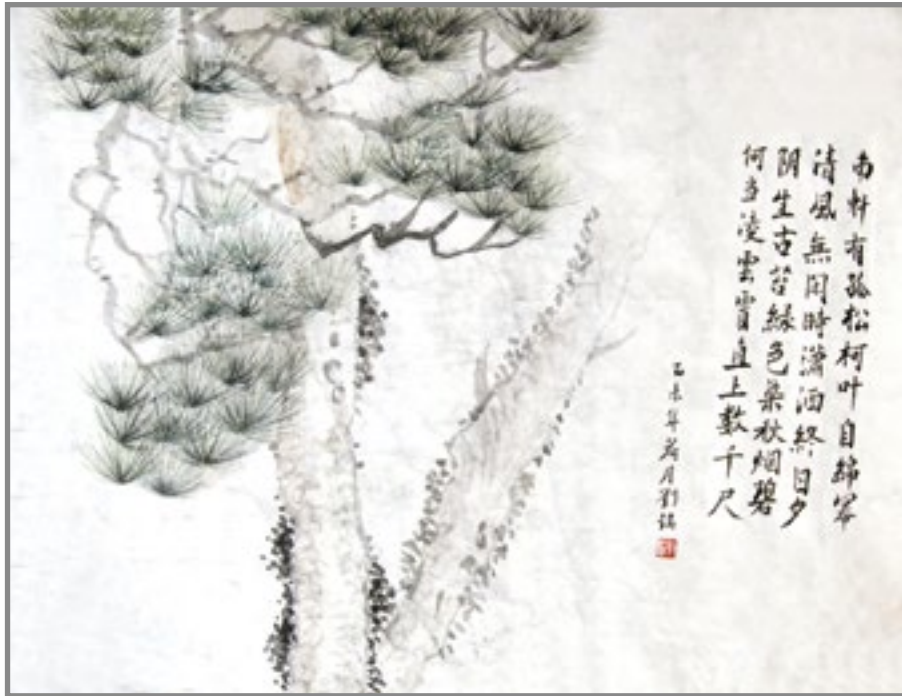 南軒有孤松柯叶自綿冪
清風無閑時瀟洒終日夕
阴生古苔緑色染秋烟碧
何当凌雲霄直上數千尺
乙未年 月劉